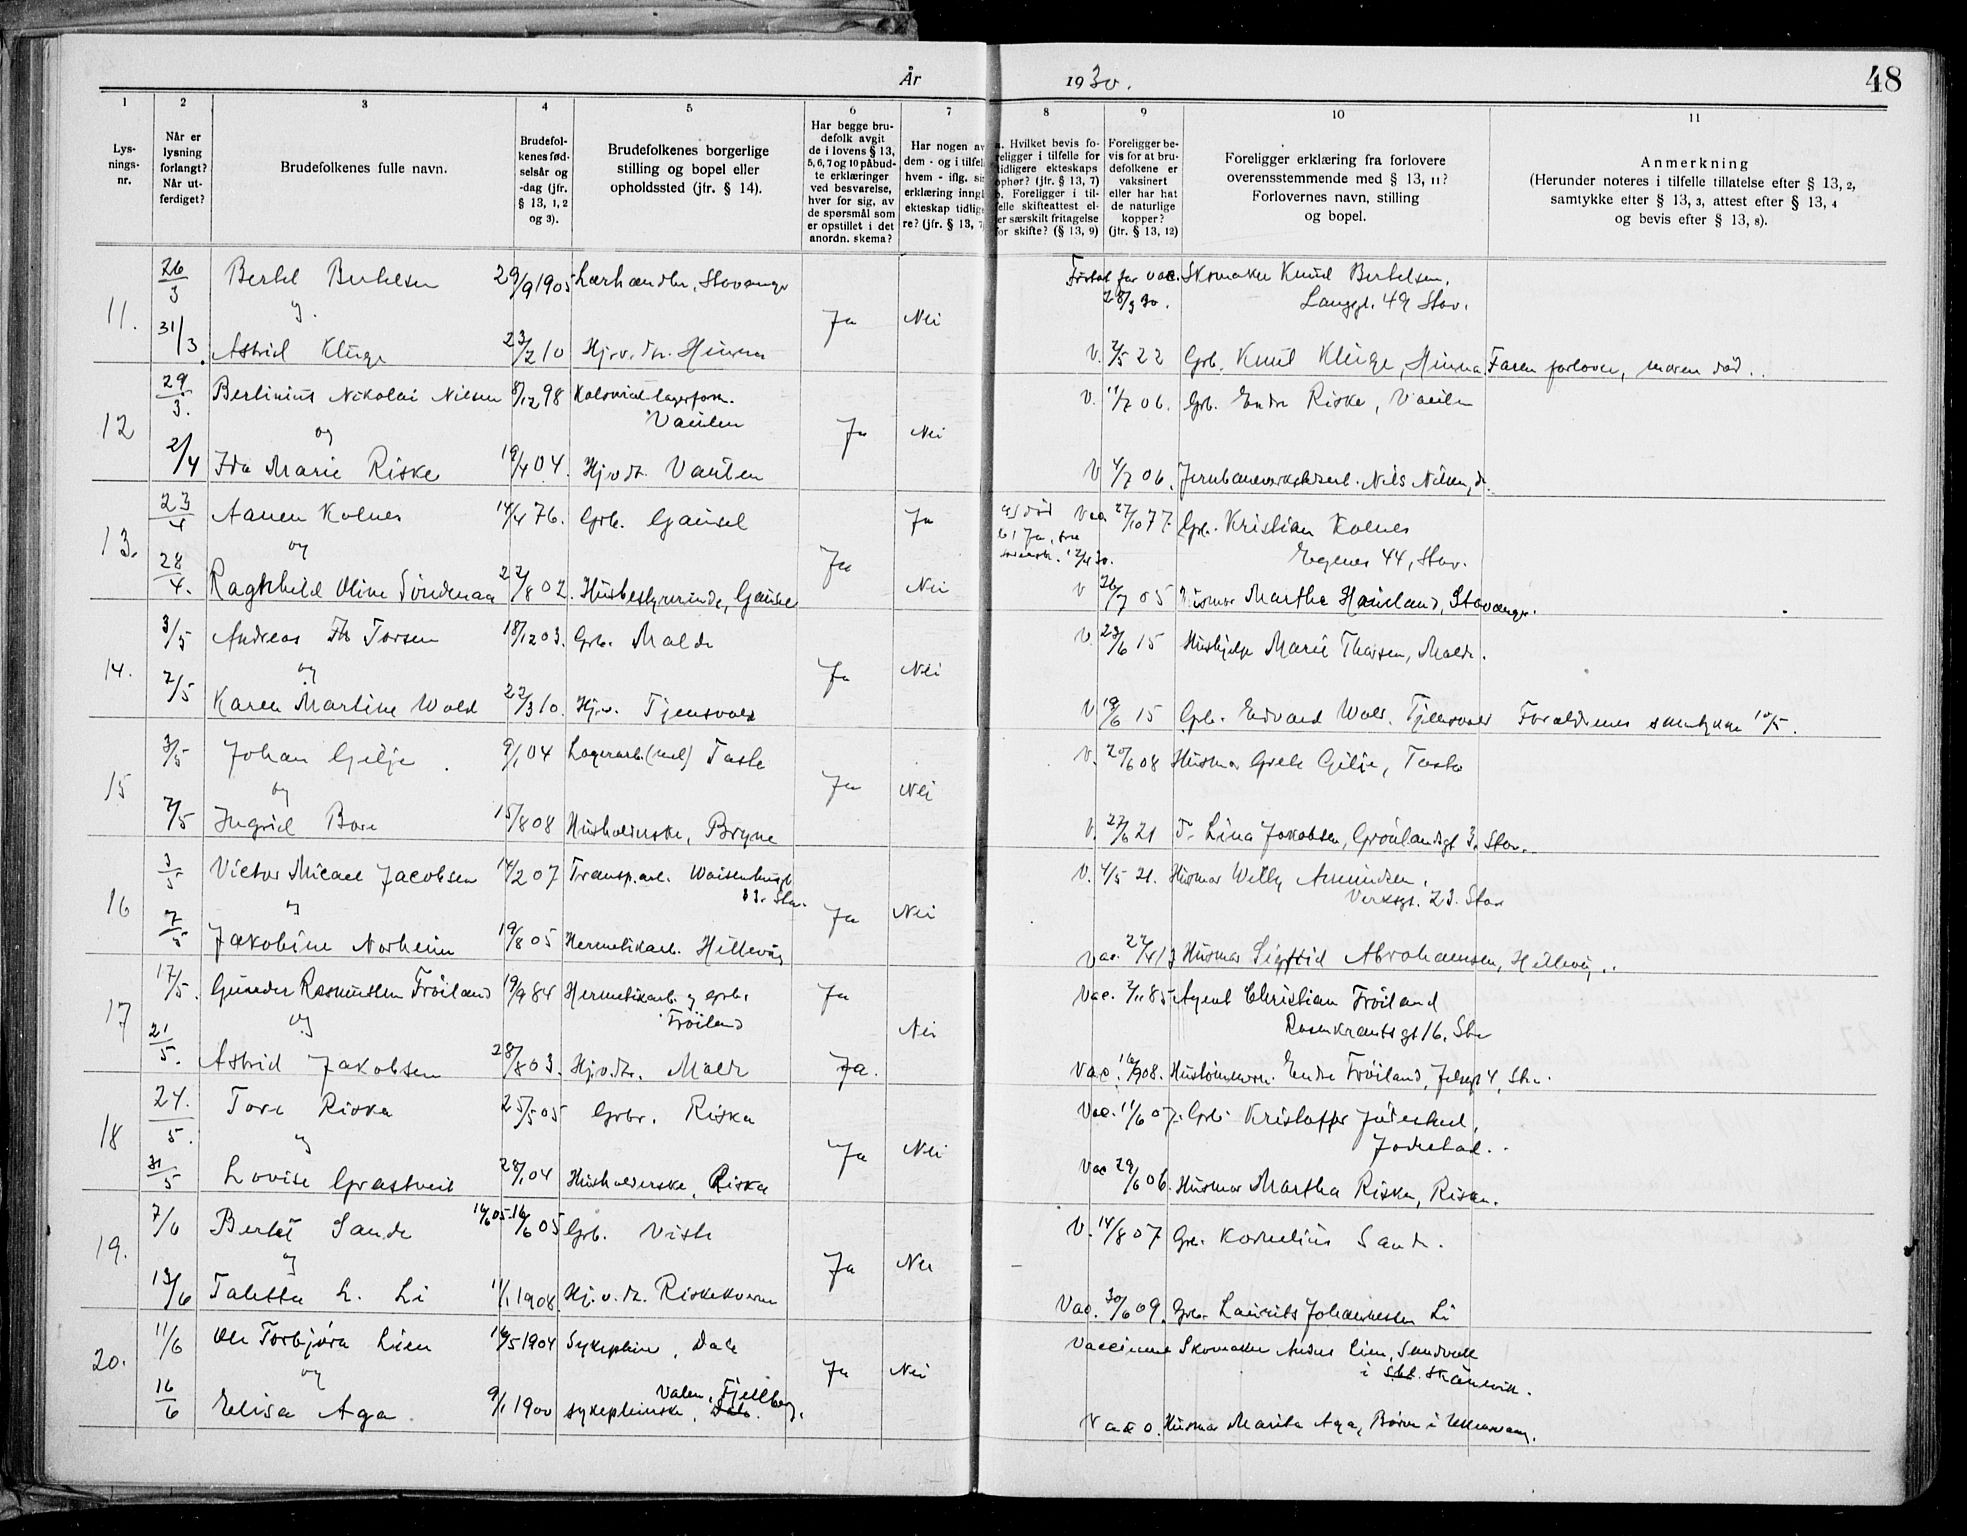 År 1930.
48
1 2 3 4 5 6 7 8 9 10 11
Lys-
nings-
nr.
Når er
lysning
forlangt?
Når ut-
ferdiget?
Brudefolkenes fulle navn.
Brudefol-
kenes fød-
selsår og
-dag (jfr.
§ 13, 1, 2
og 3).
Brudefolkenes borgerlige
stilling og bopel eller
opholdssted (jfr. § 14).
Har begge bru-
defolk avgit
de i lovens § 13,
5, 6, 7 og 10 påbud-
te erklæringer
ved besvarelse,
hver for sig, av
de spørsmål som
er opstillet i det
anordn. skema?
Har nogen av
dem - og i tilfel
hvem - iflg. si
erklæring inngå
ekteskap tidlig
re? (jfr. § 13, 7
a. Hvilket bevis fo-
religger i tilfelle for
tidligere ekteskaps
ophør? (jfr. § 13, 7)
b. Foreligger i til-
felle skifteattest el-
er særskilt fritagelse
for skifte? (§ 13, 9)
Foreligger be-
vis for at bru-
defolkene er
vaksinert
eller har hat
de naturlige
kopper?
(jfr. § 13, 12)
Foreligger erklæring fra forlovere
overensstemmende med § 13, 11?
Forlovernes navn, stilling
og bopel.
Anmerkning
(Herunder noteres i tilfelle tillatelse efter § 13, 2,
samtykke efter § 13, 3, attest efter § 13, 4
og bevis efter § 13, 8).
26/3 Bertel Bertelsen 29/9 1905 Lærhandler, Stavanger for vac. Skomaker Knud Bertelsen,
28/3 30. Langgt. 49 Stav.
11. og Ja Nei
31/3 Astrid Kluge 23/2 10 Hj.v. dtr. Hinna V. 2/5 22 Grb. Knut Kluge, Hinna Faren forlover, moren død.
29/3. Bertinius Nikolai Nilsen 8/12 98 Kolonial-lagerforv. V. 11/7 06. Grb. Endre Riske, Vaulen
Vaulen
12 og Ja Nei
2/4 Ida Marie Riske 19/4 04. Hjvdt. Vaulen V 4/7 06. Jernbaneverkstedarb. Nils Nilsen, d.
23/4 Aanen Kolnes 14/4 76. Grb. Gausel Ja a) død Vac 27/10 77. Grb. Kristian Kolnes
13. og Ja b) Ja, 12/4 30. Egenes 44, Stav.
28/4. Ragnhild Oline Søndenaa 22/8 02. Husbestyrerinde, Gausel Nei V 26/7 05 Husmor Marthe Hausland, Stavanger.
3/5 Andreas Th Torsen 18/12 03. Grb. Malde V. 23/6 15 Hushjelp Marie Thorsen, Malde.
14. og Ja Nei
7/5 Karen Martine Wold 22/3 10. Hj.v. Tjensvold V 19/6 15 Grb. Edvard Wold. Tjensvold Forældrenes samtykke 10/5.
3/5 Johan Gilje 9/1 04 Lagerarb. (mel) Tasta V. 20/6 08 Husmor Grete Gilje, Tasta
15 og Ja Nei
7/5 Ingrid Bore 15/8 08 Husholderske, Bryne V. 27/6 21 Fr. Lina Jakobsen, Grønlandsgt 3. Stav.
3/5 Victor Micael Jacobsen 14/2 07 Transp.arb. Waisenhusgt V. 4/5 21. Husmor Willy Amundsen,
Stav. Verksgt. 23. Stav
16 og Ja Nei
7/5 Jakobine Norheim 19/8 05 Hermetikarb. Hillevåg Vac. 27/4 13 Husmor Sigfrid Abrahamsen, Hillevåg.
17/5. Gunder Rasmussen Frøiland 19/9 84 Hermetikarb. og grbr. Ja Vac. 2/11 85 Agent Christian Frøiland
17 og Frøiland Nei Rosenkrantzgt 16, Stv
21/5. Astrid Jakobsen 28/8 03. Hjvdtr. Malde Ja. Vac. 16/9 08. Endre Frøiland, 4, Stv.
24./5. Tore Riska 25/5 05 Grbr. Riska Vac. 11/6 07. Grb. Kristoffer Jødestad,
18 og Ja Nei Jødestad.
31/5 Lovise Grastveit 28/1 04 Husholderske, Riska Vac 29/6 06. Husmor Martha Riska, Riska.
7/6 Bertel Sande 16/6 05. 16/6 05 Grb. Viste V. 14/8 07 Grb. Kornelius Sande.
19. og Ja Nei
13/6 Taletta L. Li 11/1 1908. Hj.v.dt. Riskekvern Vac. 30/6 09. Grb. Laurits Johannessen Li
11/6 Ole Torbjørn Lien 16/5 1904 Sykepleier, Dale Vaccinert Skomaker Anders Lien, Sandvold
20. og Ja Nei i Skånevik.
16/6 Elisa Aga 9/1 1900 Sykepleierske, Dale. Valen, Fjelberg. Vacc. Husmor Marita Aga, Børve i Ullensvang.